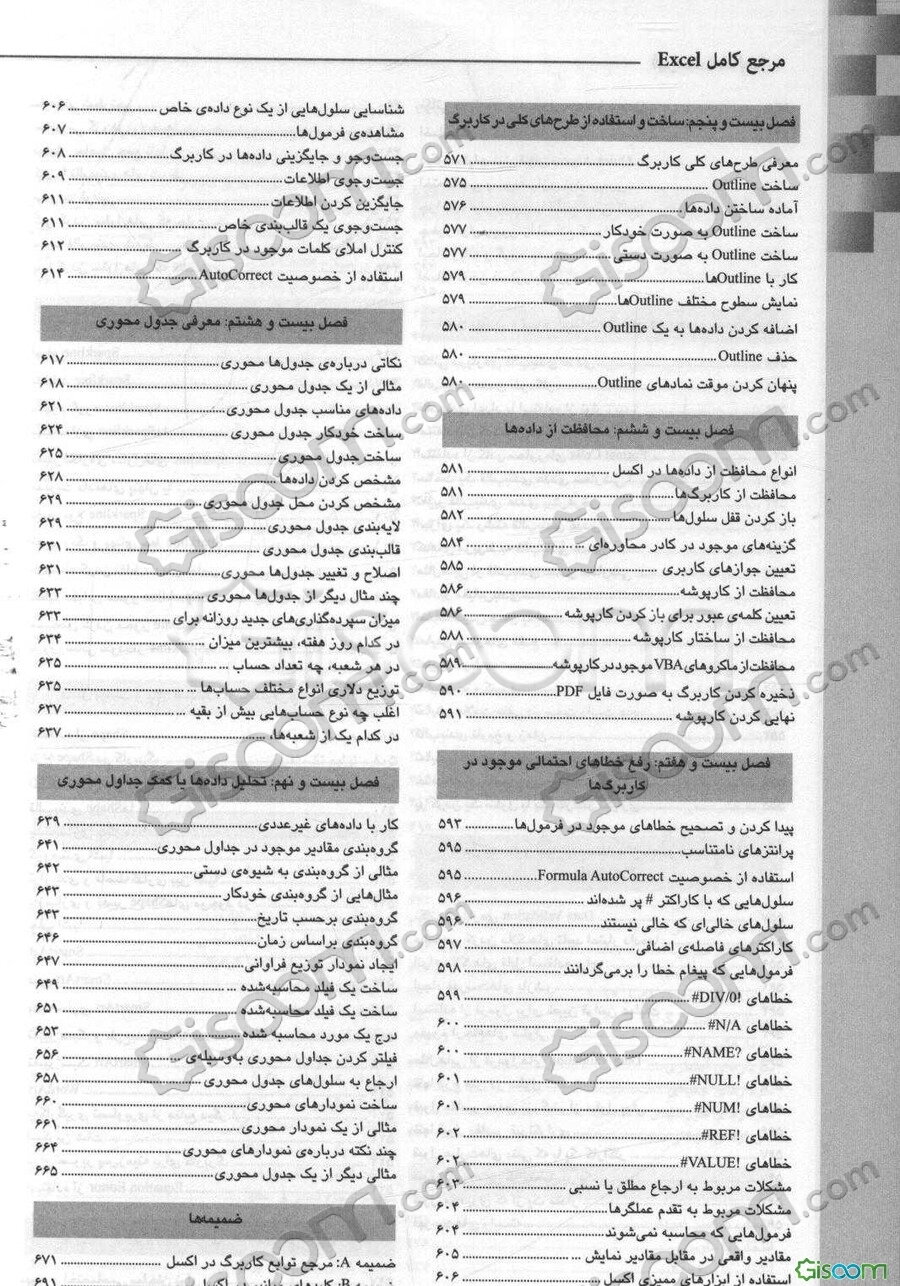 مرجع کامل Excel
فصل بیست و پنجم: ساخت و استفاده از طرح‌های کلی در کاربرگ
معرفی طرح‌های کلی کاربرگ ۵۷۱
ساخت Outline ۵۷۵
آماده ساختن داده‌ها ۵۷۶
ساخت Outline به صورت خودکار ۵۷۷
ساخت Outline به صورت دستی ۵۷۷
کار با Outlineها ۵۷۹
نمایش سطوح مختلف Outlineها ۵۷۹
اضافه کردن داده‌ها به یک Outline ۵۸۰
حذف Outline ۵۸۰
پنهان کردن موقت نمادهای Outline ۵۸۰
فصل بیست و ششم: محافظت از داده‌ها
انواع محافظت از داده‌ها در اکسل ۵۸۱
محافظت از کاربرگ‌ها ۵۸۱
باز کردن قفل سلول‌ها ۵۸۲
گزینه‌های موجود در کادر محاوره‌ای ... ۵۸۴
تعیین جوازهای کاربری ۵۸۵
محافظت از کارپوشه ۵۸۶
تعیین کلمه‌ی عبور برای باز کردن کارپوشه ۵۸۶
محافظت از ساختار کارپوشه ۵۸۸
محافظت از ماکروهای VBA موجود در کارپوشه ۵۸۹
ذخیره کردن کاربرگ به صورت فایل PDF ۵۹۰
نهایی کردن کارپوشه ۵۹۱
فصل بیست و هفتم: رفع خطاهای احتمالی موجود در
کاربرگ‌ها
پیدا کردن و تصحیح خطاهای موجود در فرمول‌ها ۵۹۳
پرانتزهای نامتناسب ۵۹۵
استفاده از خصوصیت Formula AutoCorrect ۵۹۵
سلول‌هایی که با کاراکتر # پر شده‌اند ۵۹۶
سلول‌های خالی‌ای که خالی نیستند ۵۹۶
کاراکترهای فاصله‌ی اضافی ۵۹۷
فرمول‌هایی که پیغام خطا را برمی‌گردانند ۵۹۸
خطاهای #DIV/0! ۵۹۹
خطاهای #N/A ۶۰۰
خطاهای #NAME? ۶۰۰
خطاهای #NULL! ۶۰۱
خطاهای #NUM! ۶۰۱
خطاهای #REF! ۶۰۲
خطاهای #VALUE! ۶۰۲
مشکلات مربوط به ارجاع مطلق یا نسبی ۶۰۳
مشکلات مربوط به تقدم عملگرها ۶۰۴
فرمول‌هایی که محاسبه نمی‌شوند ۶۰۴
مقادیر واقعی در مقابل مقادیر نمایش ... ۶۰۵
استفاده از ابزارهای ممیزی اکسل ۶۰۶
شناسایی سلول‌هایی از یک نوع داده‌ی خاص ۶۰۶
مشاهده‌ی فرمول‌ها ۶۰۷
جست‌وجو و جایگزینی داده‌ها در کاربرگ ۶۰۸
جست‌وجوی اطلاعات ۶۰۹
جایگزین کردن اطلاعات ۶۱۱
جست‌وجوی یک قالب‌بندی خاص ۶۱۱
کنترل املای کلمات موجود در کاربرگ ۶۱۲
استفاده از خصوصیت AutoCorrect ۶۱۴
فصل بیست و هشتم: معرفی جدول محوری
نکاتی درباره‌ی جدول‌ها محوری ۶۱۷
مثالی از یک جدول محوری ۶۱۸
داده‌های مناسب جدول محوری ۶۲۱
ساخت خودکار جدول محوری ۶۲۴
ساخت جدول محوری ۶۲۵
مشخص کردن داده‌ها ۶۲۸
مشخص کردن محل جدول محوری ۶۲۹
لایه‌بندی جدول محوری ۶۲۹
قالب‌بندی جدول محوری ۶۳۱
اصلاح و تغییر جدول‌ها محوری ۶۳۱
چند مثال دیگر از جدول‌ها محوری ۶۳۳
میزان سپرده‌گذاری‌های جدید روزانه برای ... ۶۳۳
در کدام روز هفته، بیشترین میزان ... ۶۳۴
در هر شعبه، چه تعداد حساب ... ۶۳۵
توزیع دلاری انواع مختلف حساب‌ها ... ۶۳۵
اغلب چه نوع حساب‌هایی بیش از بقیه ... ۶۳۷
در کدام یک از شعبه‌ها، ... ۶۳۷
فصل بیست و نهم: تحلیل داده‌ها با کمک جداول محوری
کار با داده‌های غیرعددی ۶۳۹
گروه‌بندی مقادیر موجود در جداول محوری ۶۴۱
مثالی از گروه‌بندی به شیوه‌ی دستی ۶۴۲
مثال‌هایی از گروه‌بندی خودکار ۶۴۳
گروه‌بندی برحسب تاریخ ۶۴۳
گروه‌بندی براساس زمان ۶۴۶
ایجاد نمودار توزیع فراوانی ۶۴۷
ساخت یک فیلد محاسبه‌شده ... ۶۴۹
ساخت یک فیلد محاسبه‌شده ۶۵۱
درج یک مورد محاسبه شده ۶۵۳
فیلتر کردن جداول محوری به‌وسیله‌ی ... ۶۵۶
ارجاع به سلول‌های جدول محوری ۶۵۸
ساخت نمودارهای محوری ۶۶۰
مثالی از یک نمودار محوری ۶۶۱
چند نکته درباره‌ی نمودارهای محوری ۶۶۴
مثالی دیگر از یک جدول محوری ۶۶۵
ضمیمه‌ها
ضمیمه A: مرجع توابع کاربرگ در اکسل ۶۷۱
Gisoom